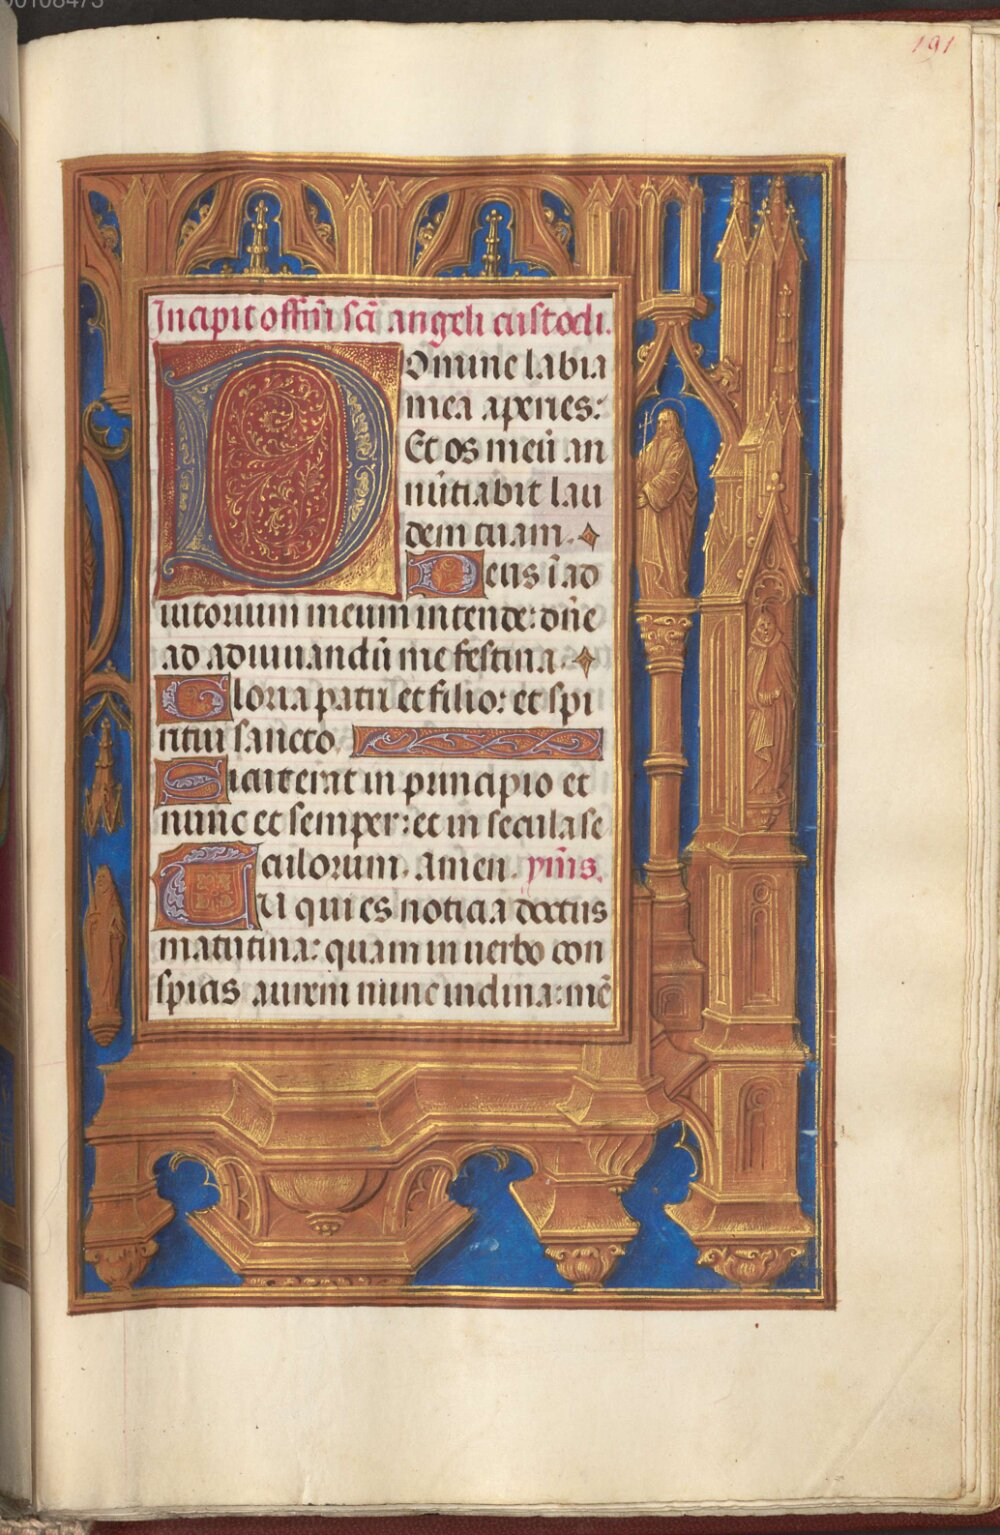 00108473
191
Incipit offiñ scĩ angeli custodi.
Domine labia
mea aperies:
Et os meũ an
nũtiabit lau
dem tuam.
Deus ĩ ad
iutorium meum intende: dñe
ad adiuuandũ me festina.
Gloria patri et filio: et spi
ritui sancto.
Sicut erat in principio et
nunc et semper: et in secula se
culorum. Amen. ymñs.
Tu qui es noticia doctus
matutina: quam in uerbo con
spicis aurem nunc inclina: mẽ